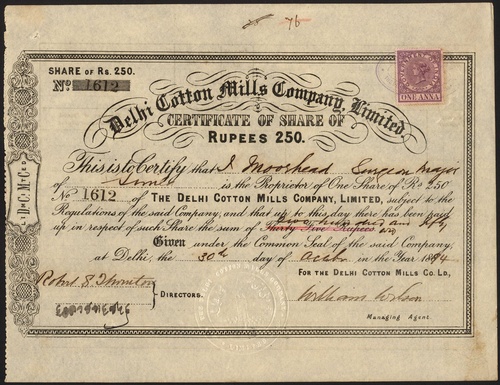 76
SHARE OF RS. 250.
No. 1612
Delhi Cotton Mills Company, Limited.
CERTIFICATE OF SHARE OF
RUPEES 250.
ONE ANNA
D. C. M. Co.
This is to Certify that J. Moorhead Surgeon Major
of is the Proprietor of One Share of Rs 250
No 1612 of THE DELHI COTTON MILLS COMPANY, LIMITED, subject to the
Regulations of the said Company, and that up to this day there has been paid
Two hundred and fifty
up in respect of such Share the sum of Thirty Five Rupees
Given under the Common Seal of the said Company,
at Delhi, the 30th day of Octbr in the Year 1894
FOR THE DELHI COTTON MILLS CO. LD,
Robert S Thornton
DIRECTORS.
William Wilson
Managing Agent.